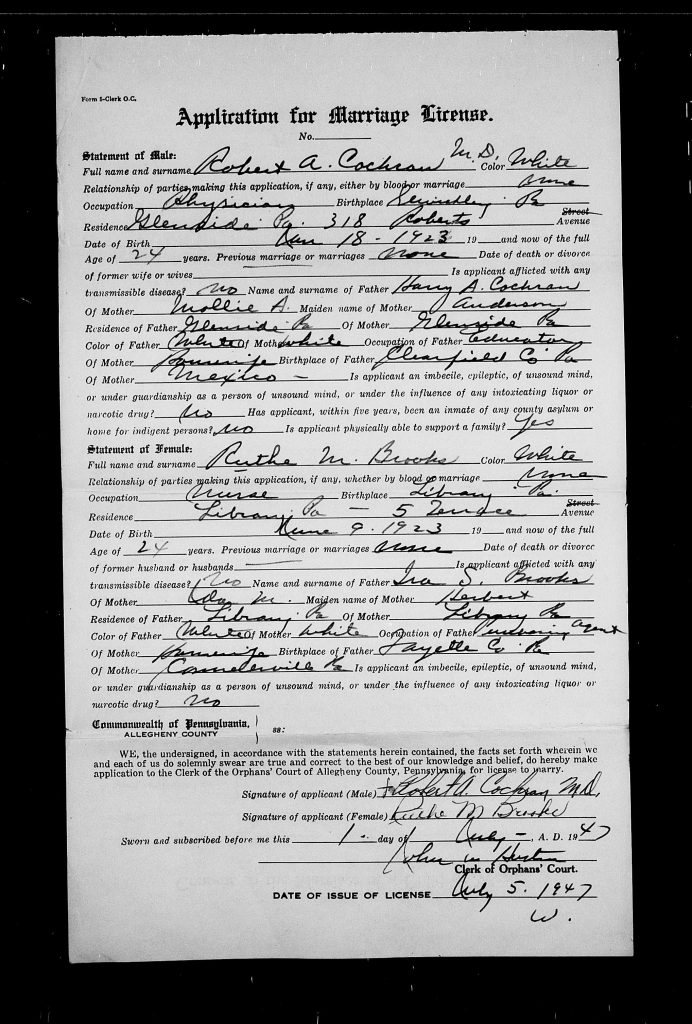 Form 5-Clerk O.C.
Application for Marriage License.
No.
Statement of Male:
Full name and surname Robert A. Cochran M.D. Color White
Relationship of parties making this application, if any, either by blood or marriage none
Occupation Physician Birthplace Pa
Residence Glenside Pa. 318 Roberts Street Avenue
Date of Birth Jan 18 - 1923 19 and now of the full
Age of 24 years. Previous marriage or marriages none Date of death or divorce
of former wife or wives Is applicant afflicted with any
transmissible disease? no Name and surname of Father Harry A. Cochran
Of Mother Mollie A. Maiden name of Mother Anderson
Residence of Father Glenside Pa Of Mother Glenside Pa
Color of Father White Of Mother White Occupation of Father Educator
Of Mother Housewife Birthplace of Father Clearfield Co Pa
Of Mother Mexico - Is applicant an imbecile, epileptic, of unsound mind,
or under guardianship as a person of unsound mind, or under the influence of any intoxicating liquor or
narcotic drug? no Has applicant, within five years, been an inmate of any county asylum or
home for indigent persons? no Is applicant physically able to support a family? Yes
Statement of Female:
Full name and surname Ruthe M. Brooks Color White
Relationship of parties making this application, if any, whether by blood or marriage none
Occupation Nurse Birthplace Library Pa.
Residence Library Pa - 5 Terrace Street Avenue
Date of Birth June 9 - 1923 19 and now of the full
Age of 24 years. Previous marriage or marriages none Date of death or divorce
of former husband or husbands Is applicant afflicted with any
transmissible disease? No Name and surname of Father Ira S. Brooks
Of Mother Ida M. Maiden name of Mother Herbert
Residence of Father Library Pa Of Mother Library Pa
Color of Father White Of Mother White Occupation of Father Purchasing Agent
Of Mother Housewife Birthplace of Father Fayette Co Pa
Of Mother Connellsville Pa Is applicant an imbecile, epileptic, of unsound mind,
or under guardianship as a person of unsound mind, or under the influence of any intoxicating liquor or
narcotic drug? no
Commonwealth of Pennsylvania,
ALLEGHENY COUNTY ss:
WE, the undersigned, in accordance with the statements herein contained, the facts set forth wherein we
and each of us do solemnly swear are true and correct to the best of our knowledge and belief, do hereby make
application to the Clerk of the Orphans' Court of Allegheny County, Pennsylvania, for license to marry.
Signature of applicant (Male) Robert A. Cochran M.D.
Signature of applicant (Female) Ruthe M Brooks
Sworn and subscribed before me this 1 - day of July - , A. D. 1947
John
Clerk of Orphans' Court.
DATE OF ISSUE OF LICENSE July 5. 1947
W.